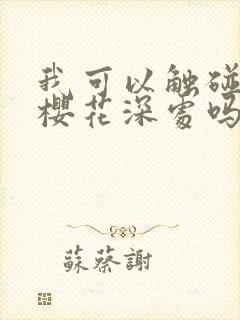 我可以触碰
樱花深处吗
蘇蔡謝